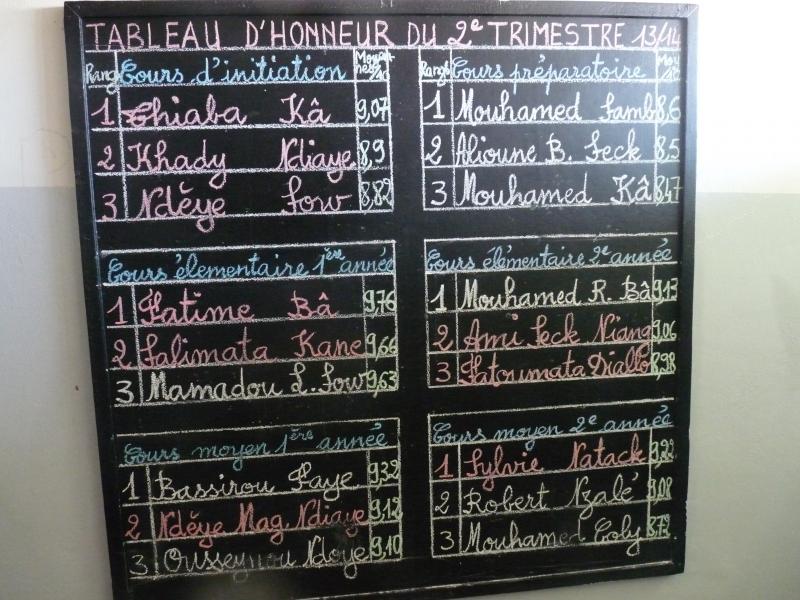 TABLEAU D'HONNEUR DU 2e TRIMESTRE 13/14
Rang Cours d'initiation
1 Thiaba Kâ 9,07
2 Khady Ndiaye 8,9
3 Ndèye Sow 8,82
Rang Cours préparatoire
1 Mouhamed Samb 8,6
2 Alioune B. Seck 8,5
3 Mouhamed Kâ 8,47
Cours élementaire 1ère année
1 Fatime Bâ 9,76
2 Salimata Kane 9,66
3 Mamadou L. Sow 9,63
Cours élémentaire 2e année
1 Mouhamed R. Bâ 9,13
2 Ami Seck Niang 9,06
3 Fatoumata Diallo 8,98
Cours moyen 1ère année
1 Bassirou Faye 9,32
2 Ndèye Mag Ndiaye 9,12
3 Ousseynou Ndoye 9,10
Cours moyen 2e année
1 Sylvie Natack 9,22
2 Robert Nzalé 9,08
3 Mouhamed Coly 8,72